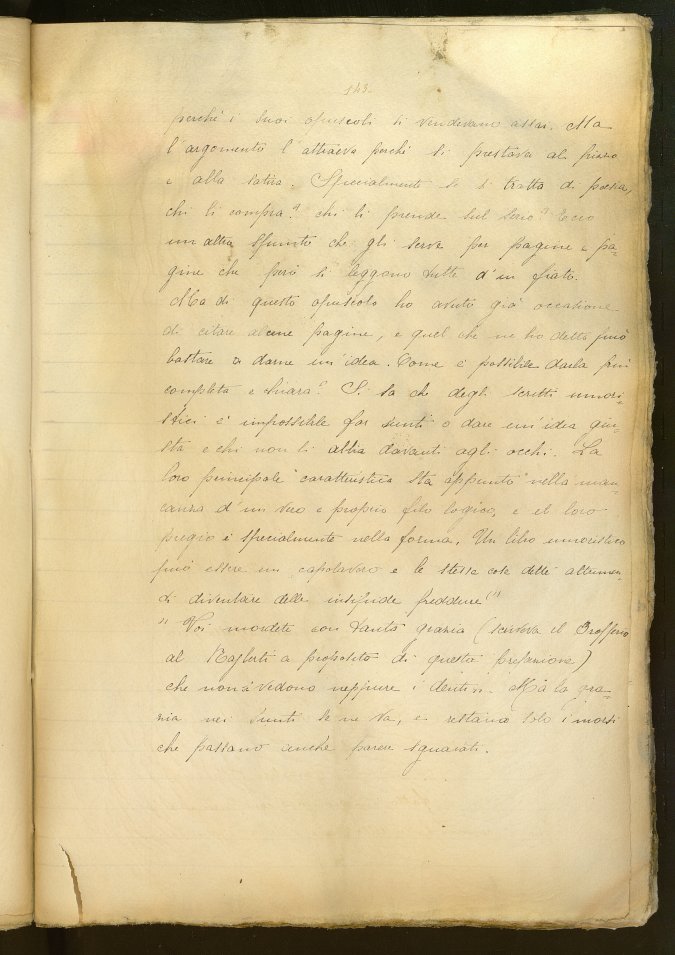 143.
perché i suoi opuscoli si vendevano assai. Ma
l'argomento l'attraeva perché si prestava al frizzo
e alla satira. Specialmente se si tratta di poesia,
chi li compra? chi li prende sul serio? Ecco
un altro spunto che gli serve per pagine e pa-
gine che però si leggono tutte d'un fiato.
Ma di questo opuscolo ho avuto già occasione
di citare alcune pagine, e quel che ne ho detto può
bastare a darne un'idea. Come è possibile darla più
completa e chiara? Si sa che degli scritti umori-
stici è impossibile far sunti o dare un'idea giu-
sta a chi non li abbia davanti agli occhi. La
loro principale caratteristica sta appunto nella man-
canza d'un vero e proprio filo logico, e il loro
pregio è specialmente nella forma. Un libro umoristico
può essere un capolavoro e le stesse cose dette altrimen-
ti diventare delle insipide freddure (1)
" Voi mordete con tanta grazia (scriveva il Brofferio
al Raiberti a proposito di questa prefazione)
che non si vedono neppure i denti ". Ma la gra-
zia nei sunti se ne va, e restano solo i morsi
che possano anche parere sguaiati.